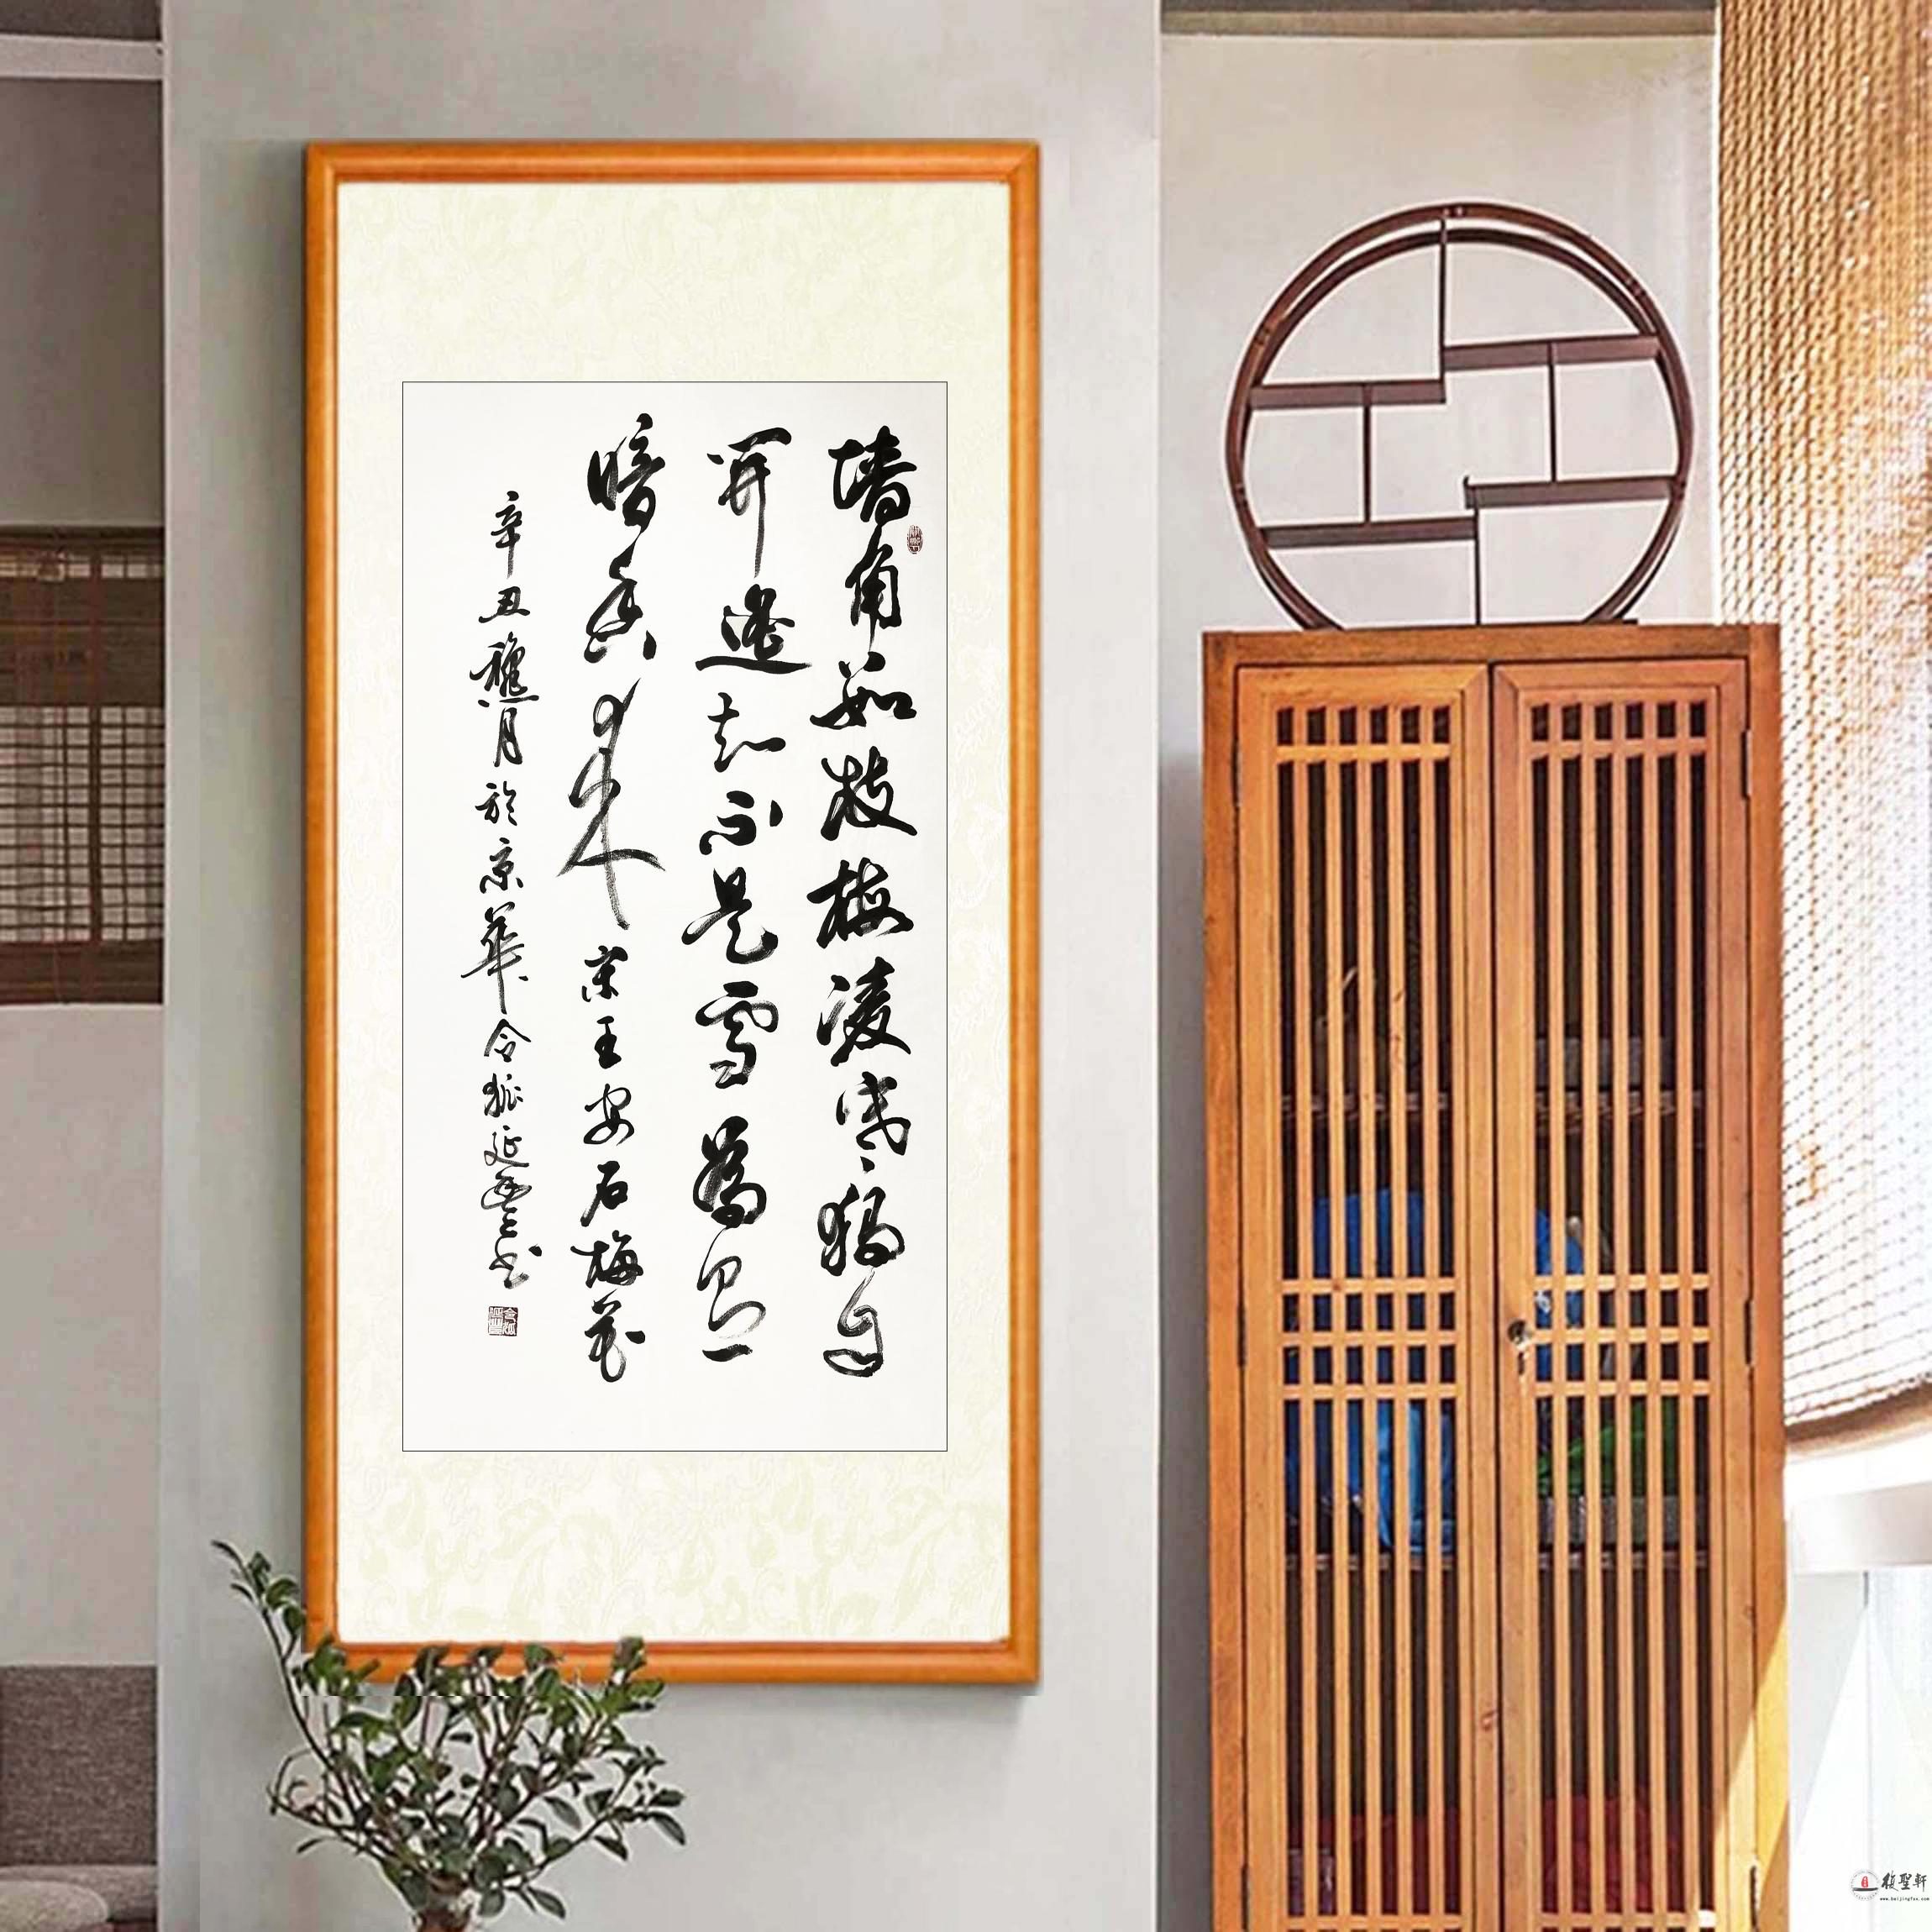 墙角數枝梅凌寒獨自
開遥知不是雪為有
暗香来宋王安石梅花
辛丑穐月於京華令狐延書
復聖軒
www.beijingfsx.com